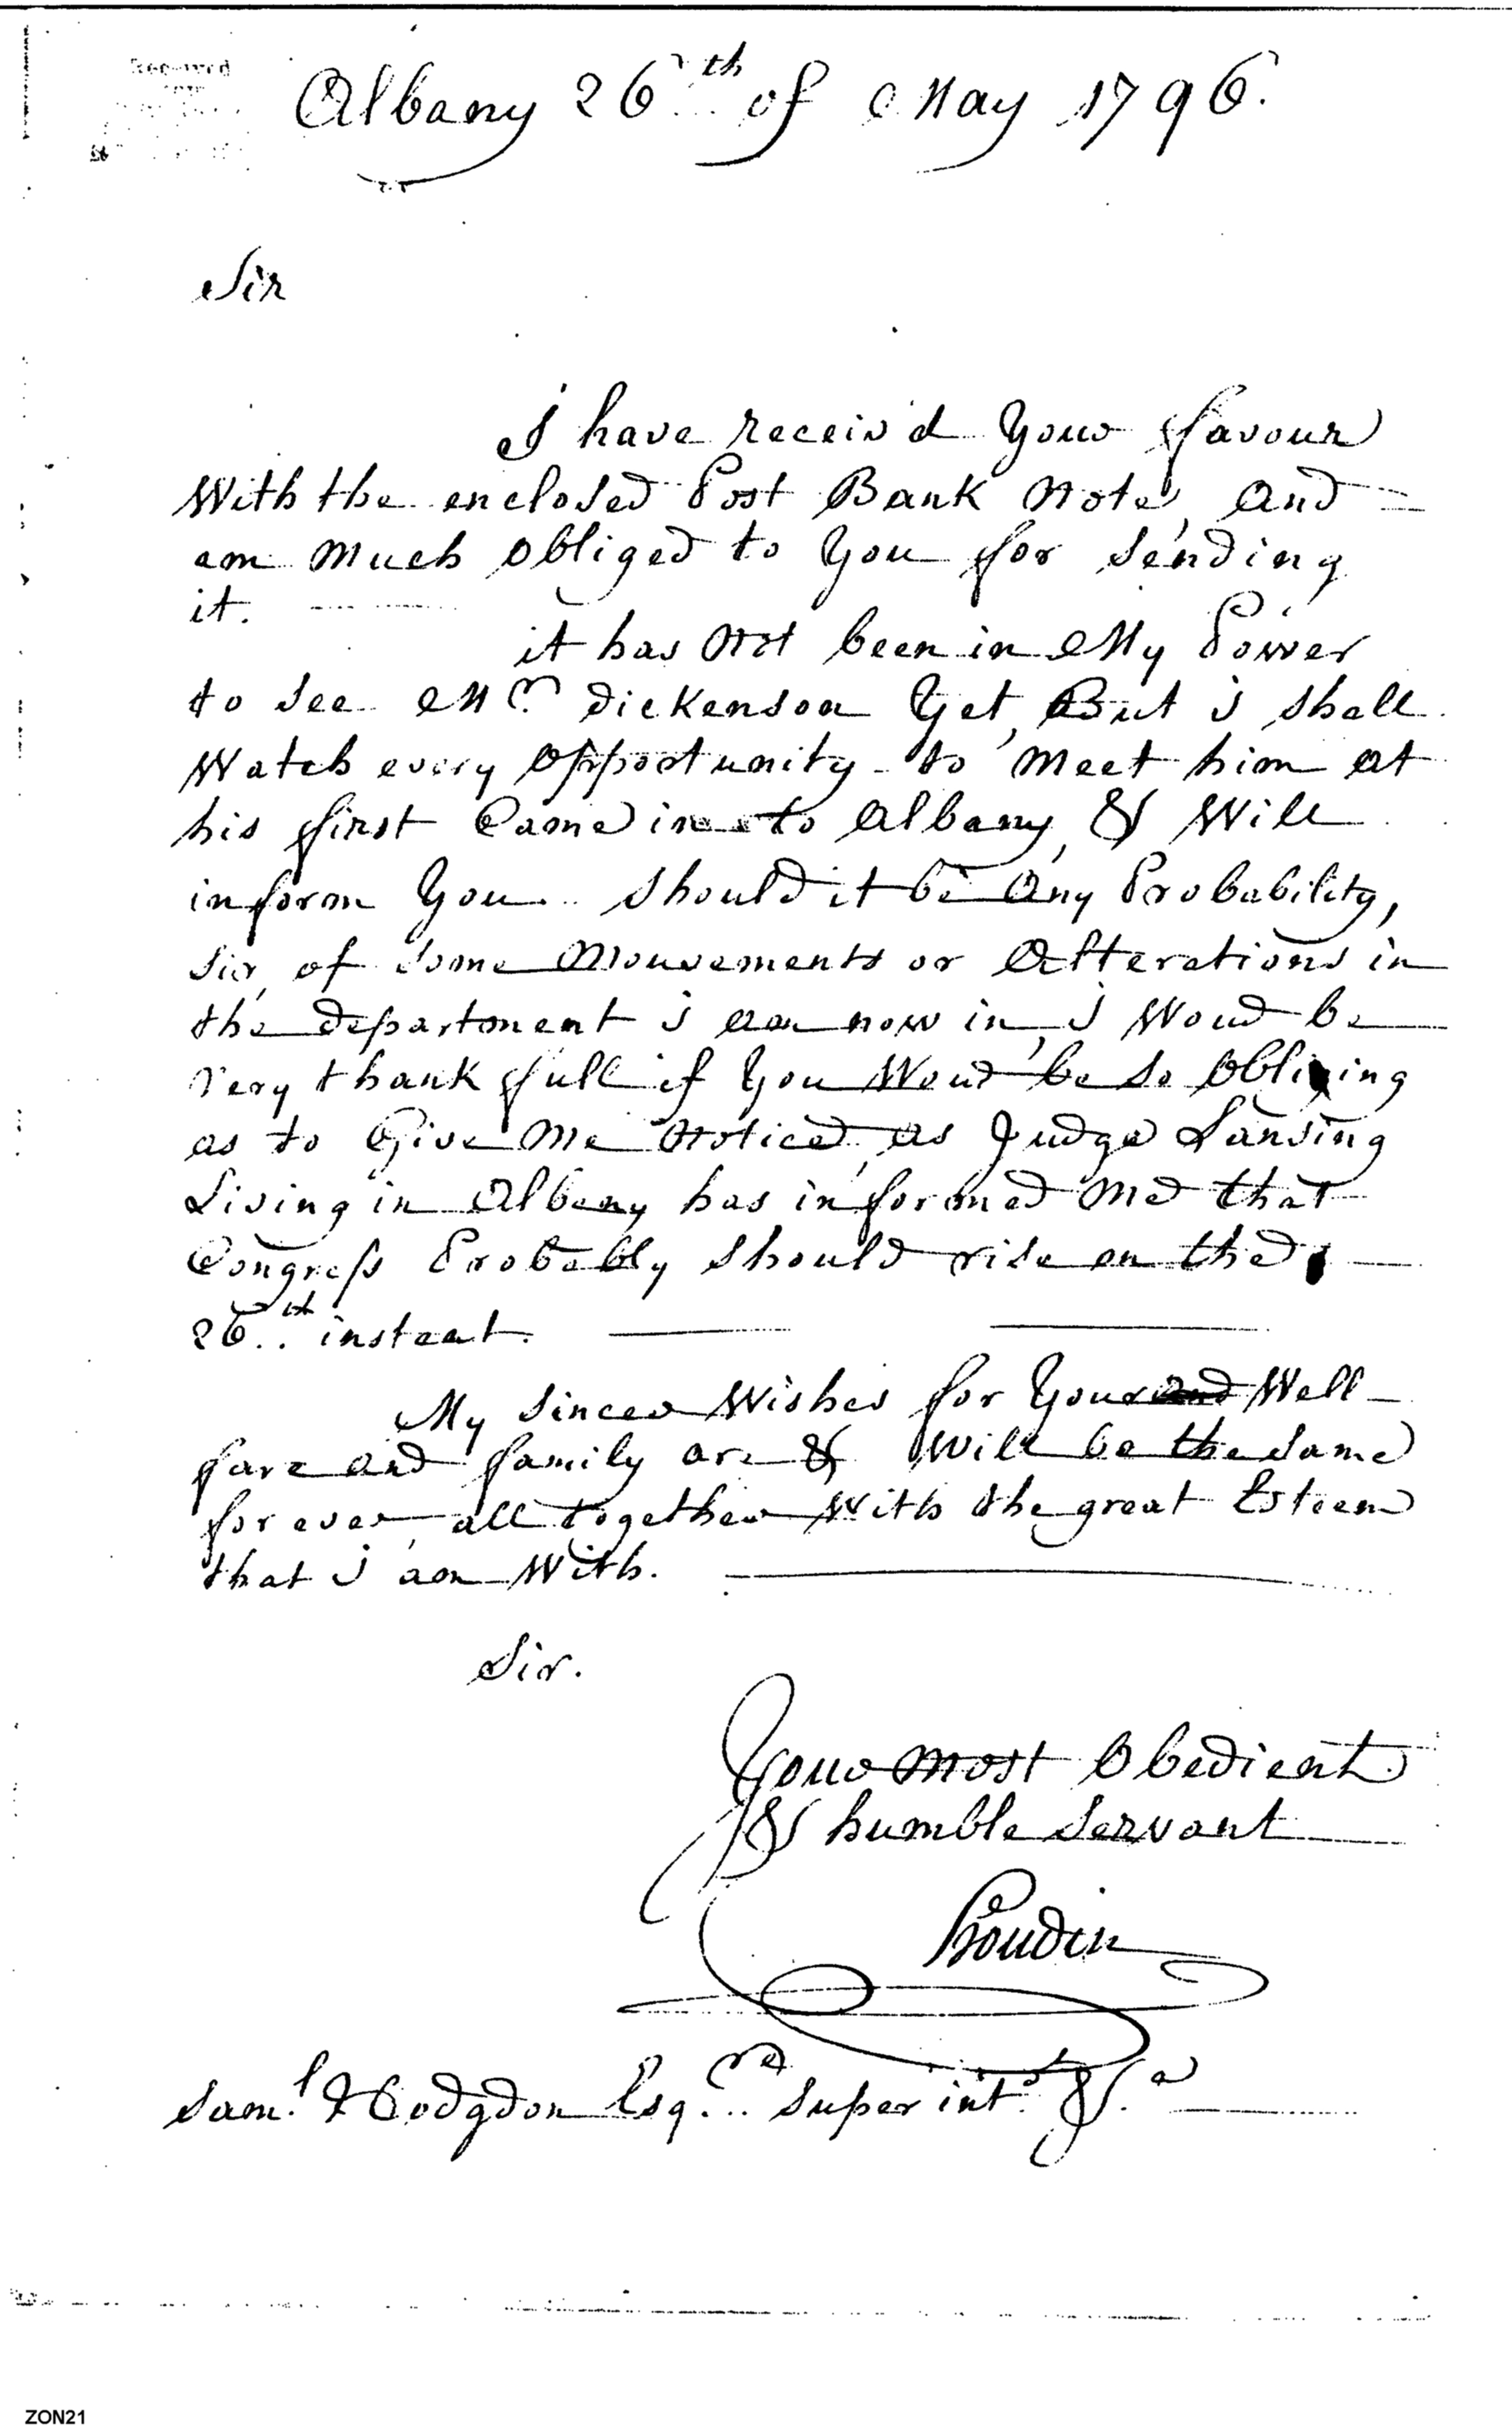 Albany 26th of May 1796.
Sir
I have receiv'd Your favour
With the enclosed Post Bank Note, And
am Much Obliged to You for Sending
it.
it has Not been in My Power
to See Mr. Dickenson Yet, But i Shall
Watch every Opportunity to Meet him at
his first Came in to Albany, & Will
inform You. Should it be Any Probability,
Sir, of Some Mouvements or Alterations in
the department i am now in, i Woud be
very thank full if You Woud be So Obliging
as to Give Me Notice, as Judge Lansing
Living in Albany has informed Me that
Congress Probably Should rise on the
26th instant.
My Sincer Wishes for Your and Well-
fare and family are & Will be the Same
for ever, all together With the great Esteem
that i am With.
Sir.
Your Most Obedient
& humble Servant
Sam.l Hodgdon Esq.re Superint.d &.a
ZON21